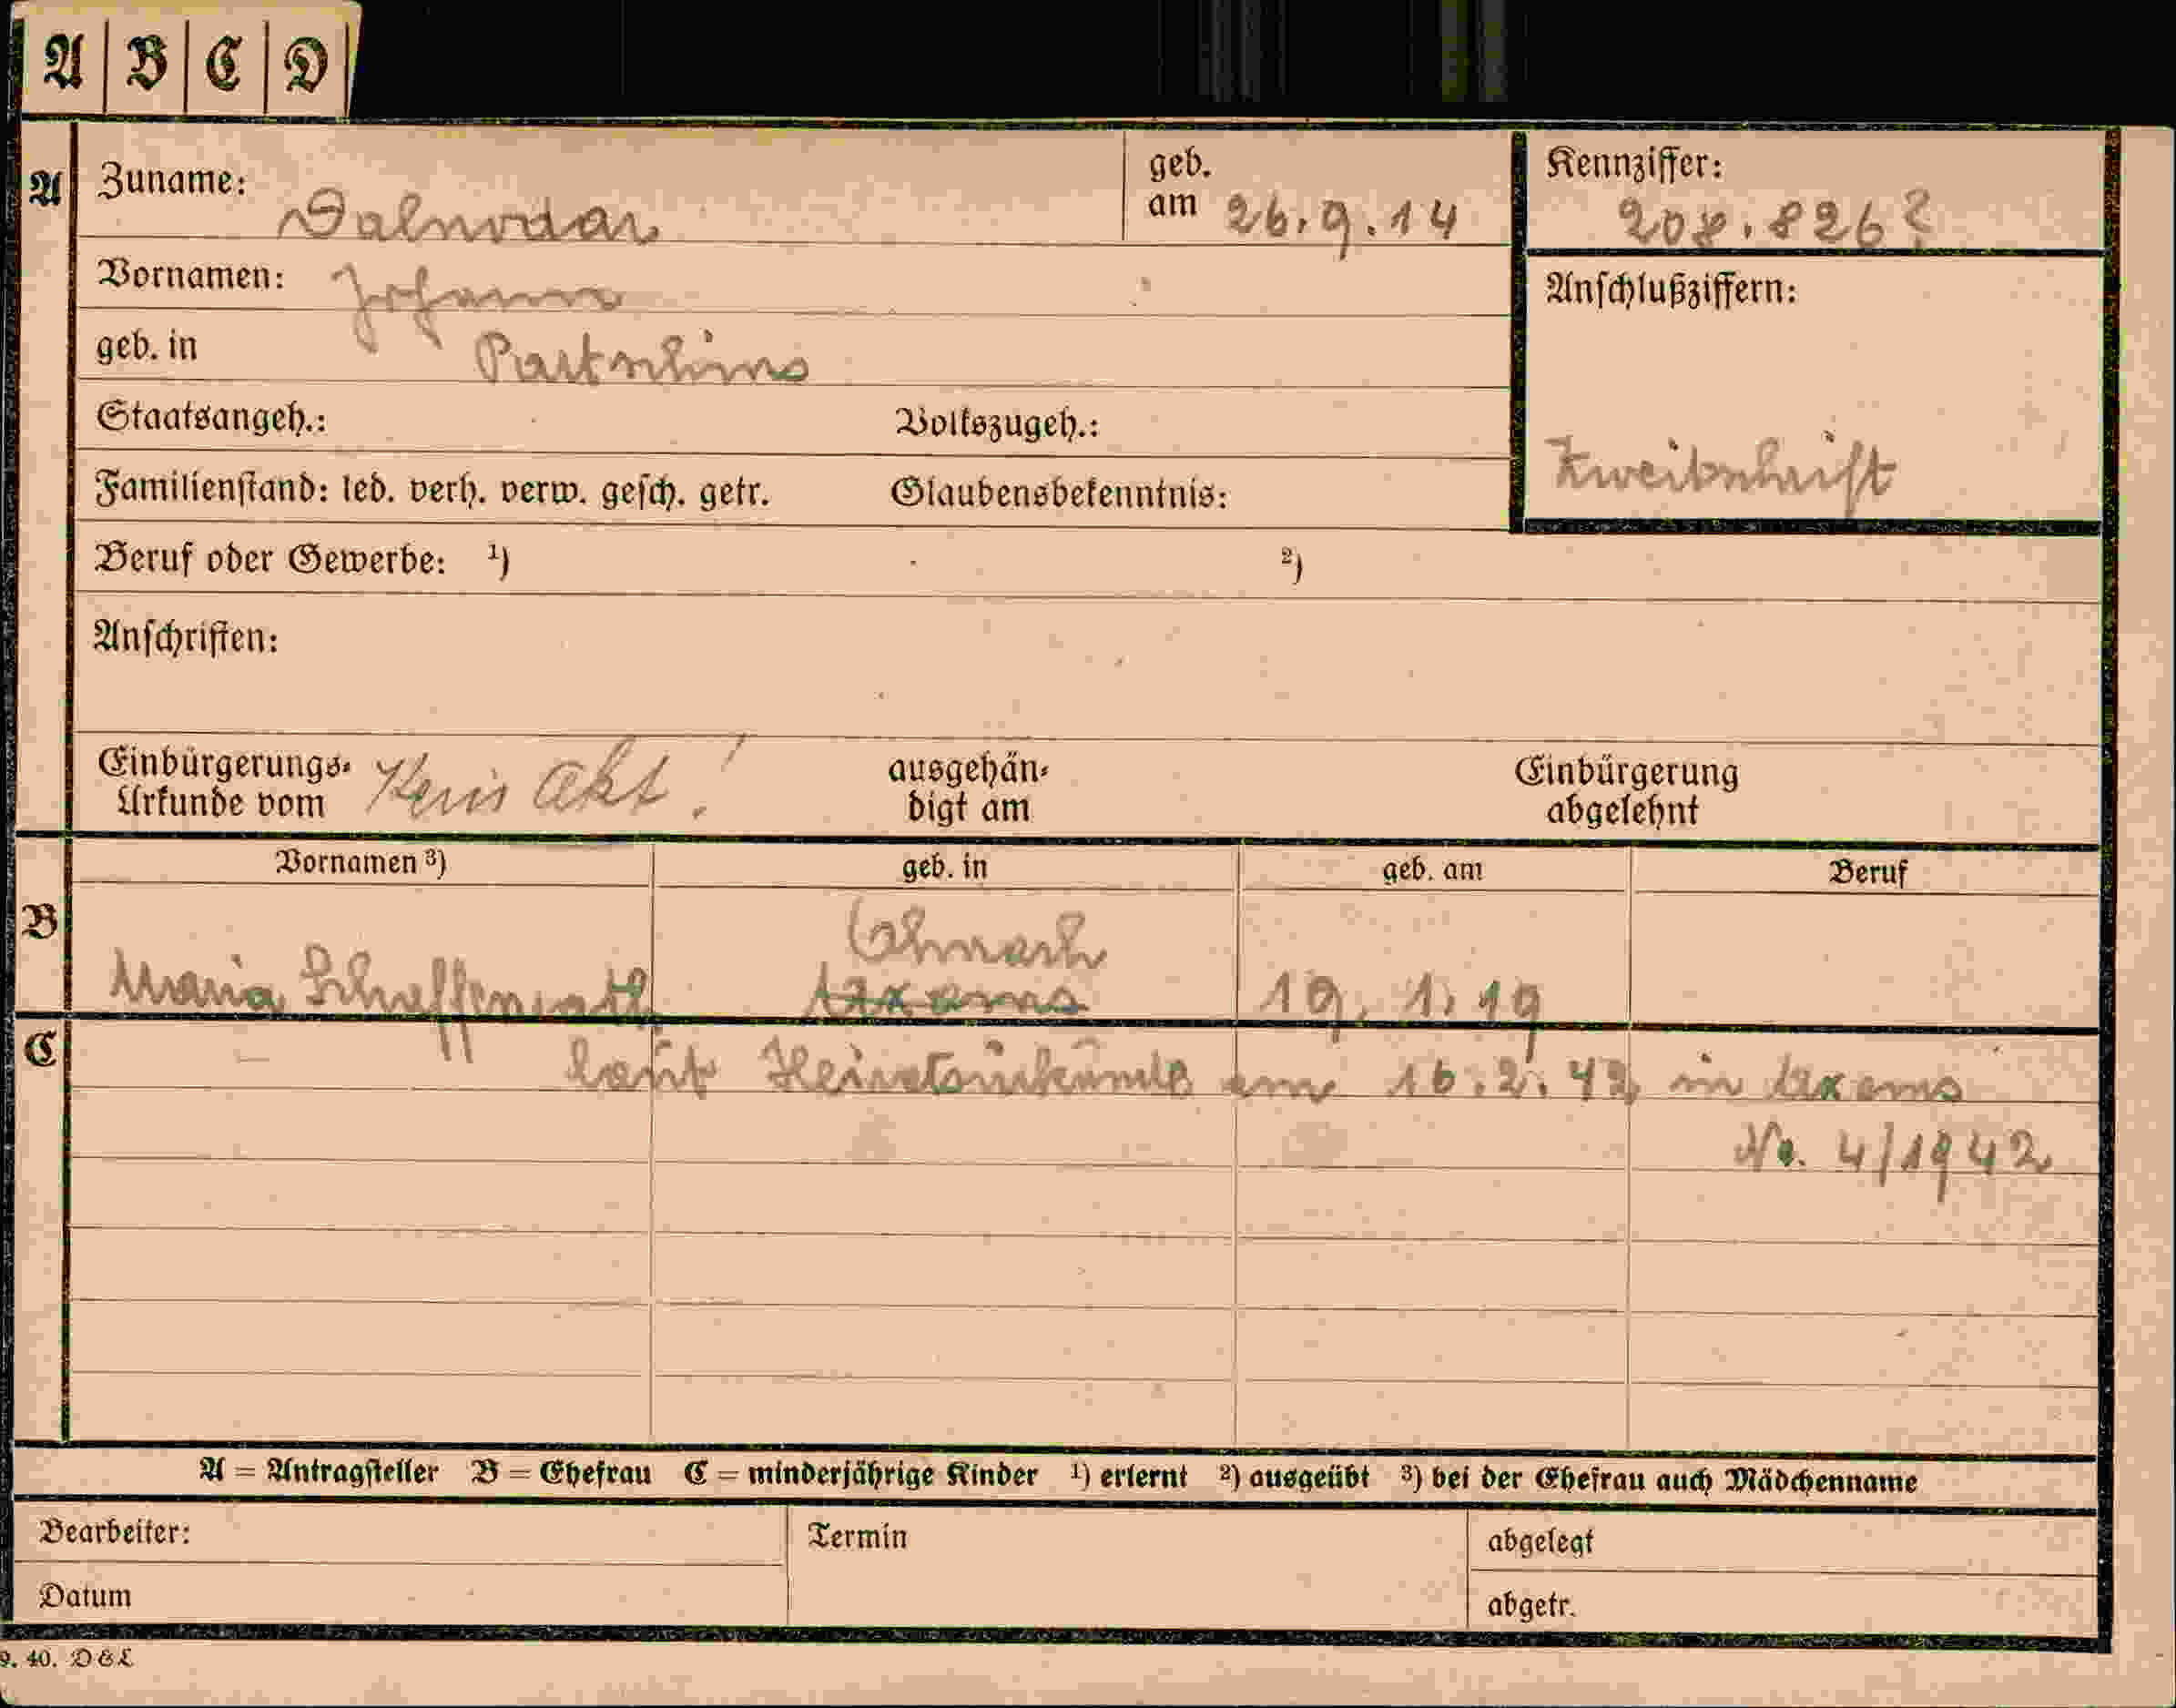 A B C D
A Zuname: Dalnodar geb. am 26.9.14 Kennziffer: 208.826?
Vornamen: Johann Anschlußziffern:
geb. in Partschins
Staatsangeh.: Volkszugeh.: Zweitschrift
Familienstand: led. verh. verw. gesch. getr. Glaubensbekenntnis:
Beruf oder Gewerbe: 1) 2)
Anschriften:
Einbürgerungs- Kein Akt! ausgehän- Einbürgerung
Urkunde vom digt am abgelehnt
Vornamen 3) geb. in geb. am Beruf
B
Maria Axams 19. 1. 19
C laut Heiratsurkunde am 16.2.42 in Axams
No. 4/1942
A = Antragsteller B = Ehefrau C = minderjährige Kinder 1) erlernt 2) ausgeübt 3) bei der Ehefrau auch Mädchenname
Bearbeiter: Termin abgelegt
Datum abgetr.
9. 40. D&L